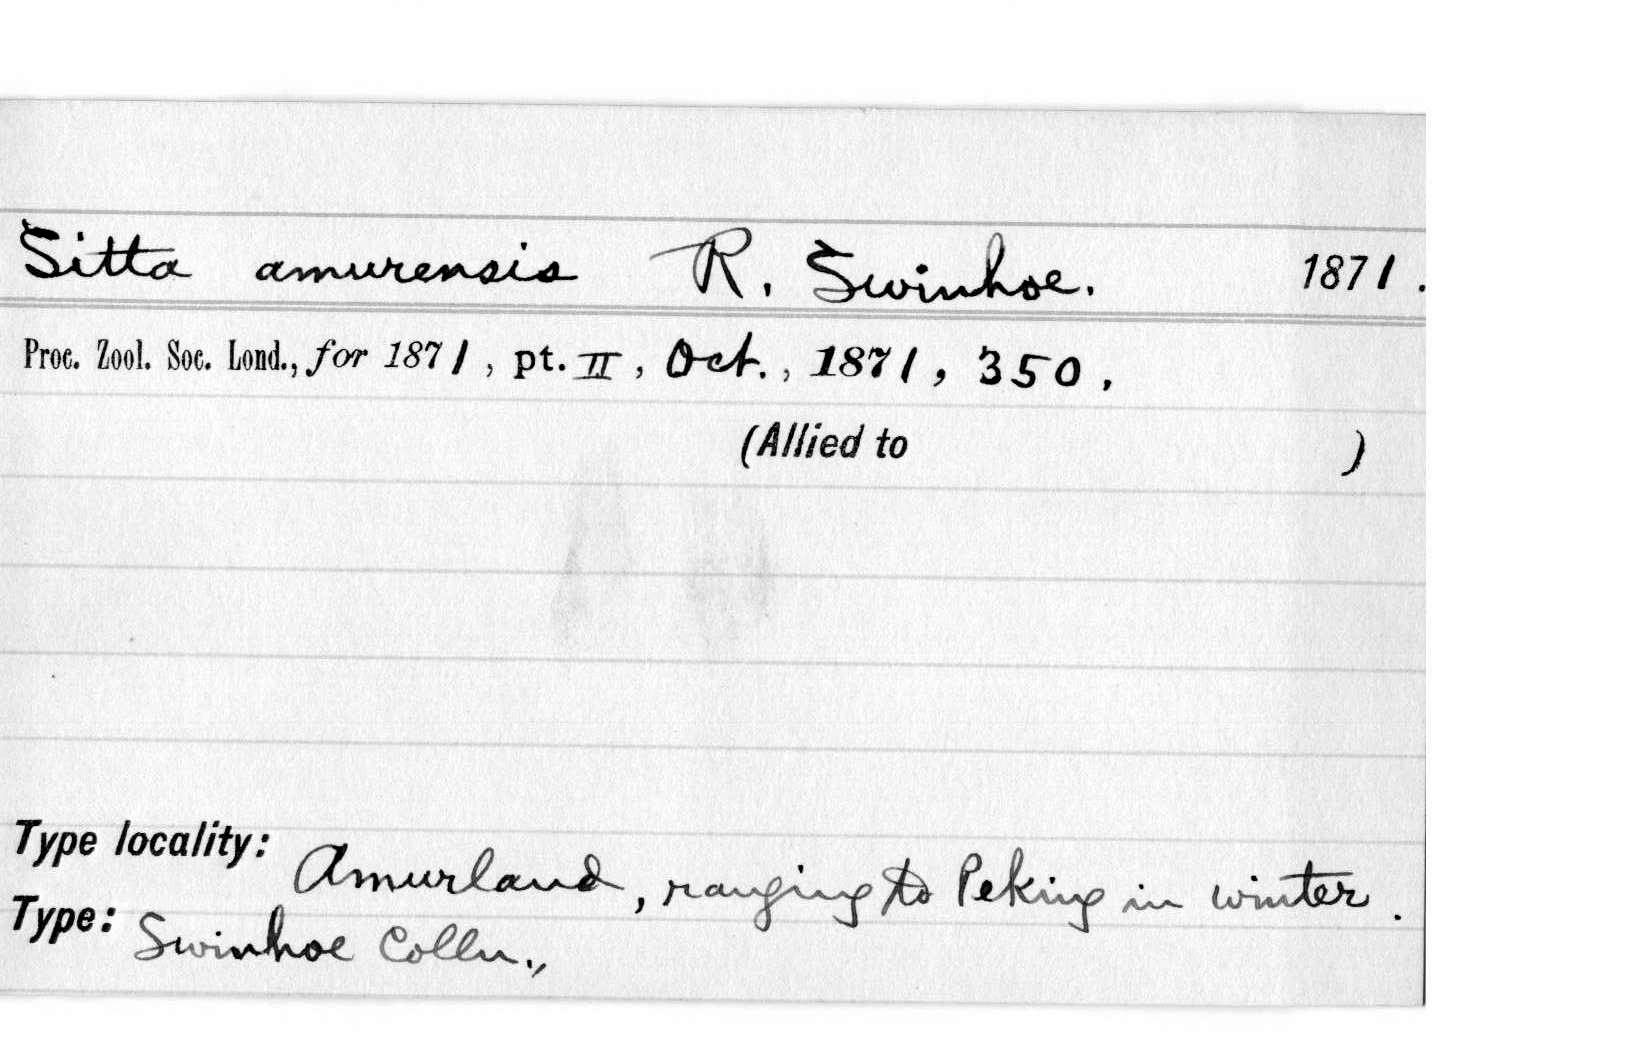 Sitta amurensis R. Swinhoe. 1871.
Proc. Zool. Soc. Lond., for 1871, pt. II, Oct., 1871, 350.
(Allied to )
Type locality: Amurland, ranging to Peking in winter.
Type: Swinhoe Colln.,